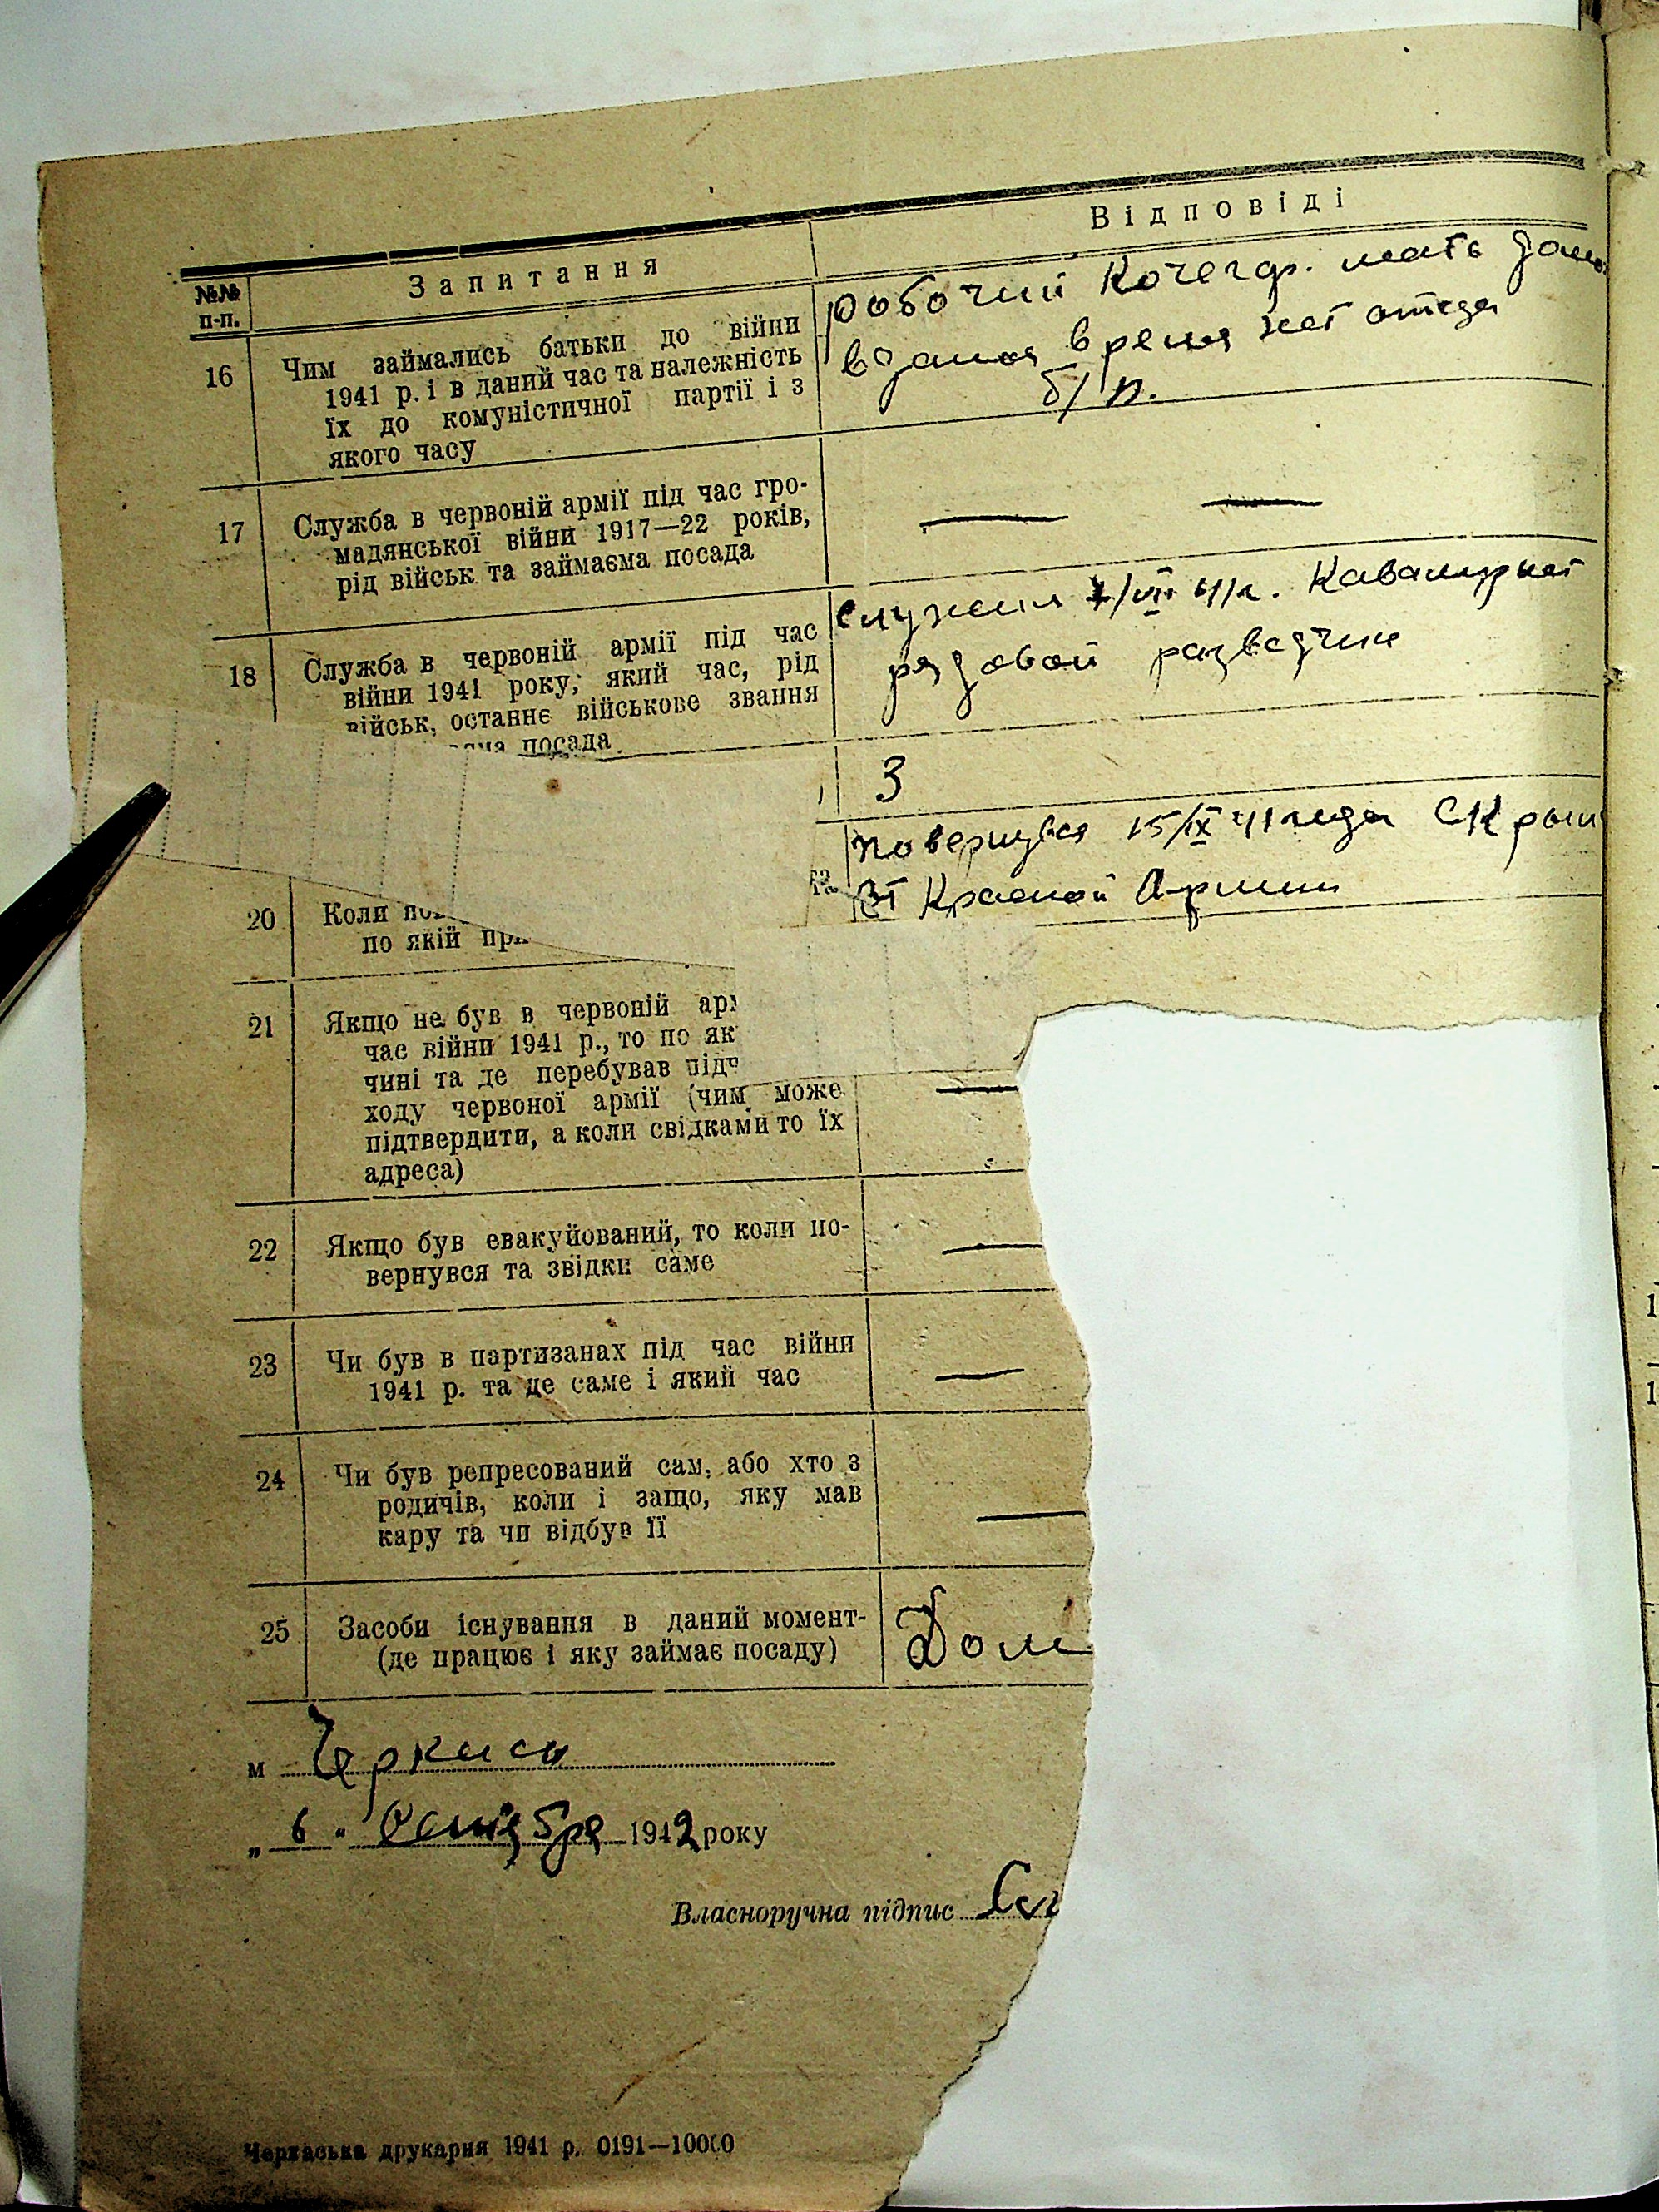 Відповіді
№№ п-п.
Запитання
16
Чим займались батьки до війни
1941 р. і в даний час та належність
їх до комуністичної партії і з
якого часу
робочий Кочегар. мать дом
в даная время нет отца
б/п.
17
Служба в червоній армії під час гро-
мадянської війни 1917—22 років,
рід військ та займаєма посада
— —
18
Служба в червоній армії під час
війни 1941 року; який час, рід
військ, останнє військове звання
посада
служил /VII 41г. Кавалерист
рядовой разведчик
3
20
Коли
по якій
повернувся 15/IX 41 года С Крым
Красной Армии
21
Якщо не був в червоній
час війни 1941 р., то по як
чині та де перебував під
ходу червоної армії (чим може
підтвердити, а коли свідками то їх
адреса)
—
22
Якщо був евакуйований, то коли по-
вернувся та звідки саме
—
23
Чи був в партизанах під час війни
1941 р. та де саме і який час
—
24
Чи був репресований сам, або хто з
родичів, коли і защо, яку мав
кару та чи відбув її
—
25
Засоби існування в даний момент-
(де працює і яку займає посаду)
Дом
м Черкассы
„ 6 " Октября 1942 року
Власноручна підпис
Черкаська друкарня 1941 р. 0191—10000